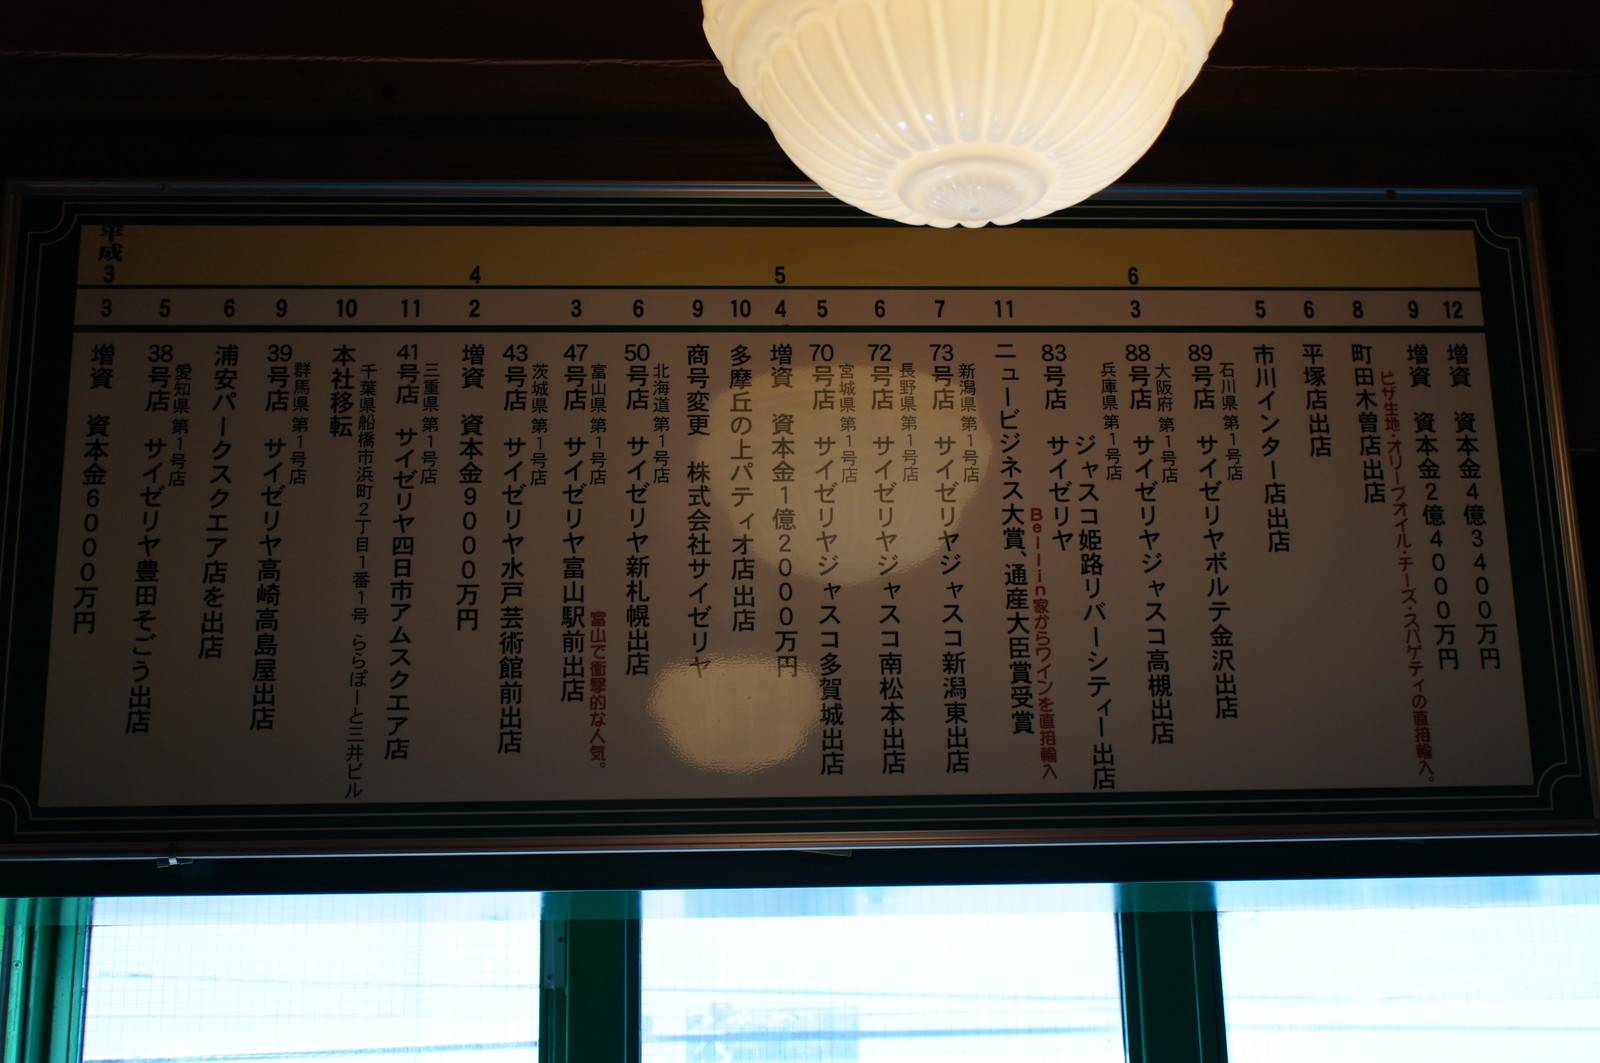 平成
3
4
5
6
3
5
6
9
10
11
2
3
6
9
10
4
5
6
7
11
3
5
6
8
9
12
増資 資本金6000万円
愛知県 第1号店
38号店 サイゼリヤ豊田そごう出店
浦安パークスクエア店を出店
群馬県 第1号店
39号店 サイゼリヤ高崎高島屋出店
本社移転
千葉県船橋市浜町2丁目1番1号 ららぽーと三井ビル
三重県 第1号店
41号店 サイゼリヤ四日市アムスクエア店
増資 資本金9000万円
茨城県 第1号店
43号店 サイゼリヤ水戸芸術館前出店
富山県 第1号店
47号店 サイゼリヤ富山駅前出店
富山で衝撃的な人気。
北海道 第1号店
50号店 サイゼリヤ新札幌出店
商号変更 株式会社サイゼリヤ
多摩丘の上パティオ店出店
増資 資本金1億2000万円
宮城県 第1号店
70号店 サイゼリヤジャスコ多賀城出店
長野県 第1号店
72号店 サイゼリヤジャスコ南松本出店
新潟県 第1号店
73号店 サイゼリヤジャスコ新潟東出店
ニュービジネス大賞、通産大臣賞受賞
Bellin家からワインを直接輸入
兵庫県 第1号店
83号店 サイゼリヤ
ジャスコ姫路リバーシティー出店
大阪府 第1号店
88号店 サイゼリヤジャスコ高槻出店
石川県 第1号店
89号店 サイゼリヤポルテ金沢出店
市川インター店出店
平塚店出店
町田木曽店出店
ピザ生地・オリーブオイル・チーズ・スパゲティの直接輸入。
増資 資本金2億4000万円
増資 資本金4億3400万円